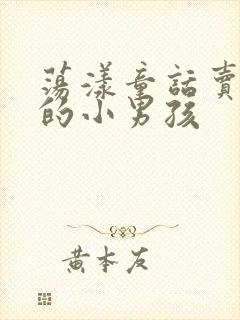 蕩漾童話賣
的小男孩
黄本友